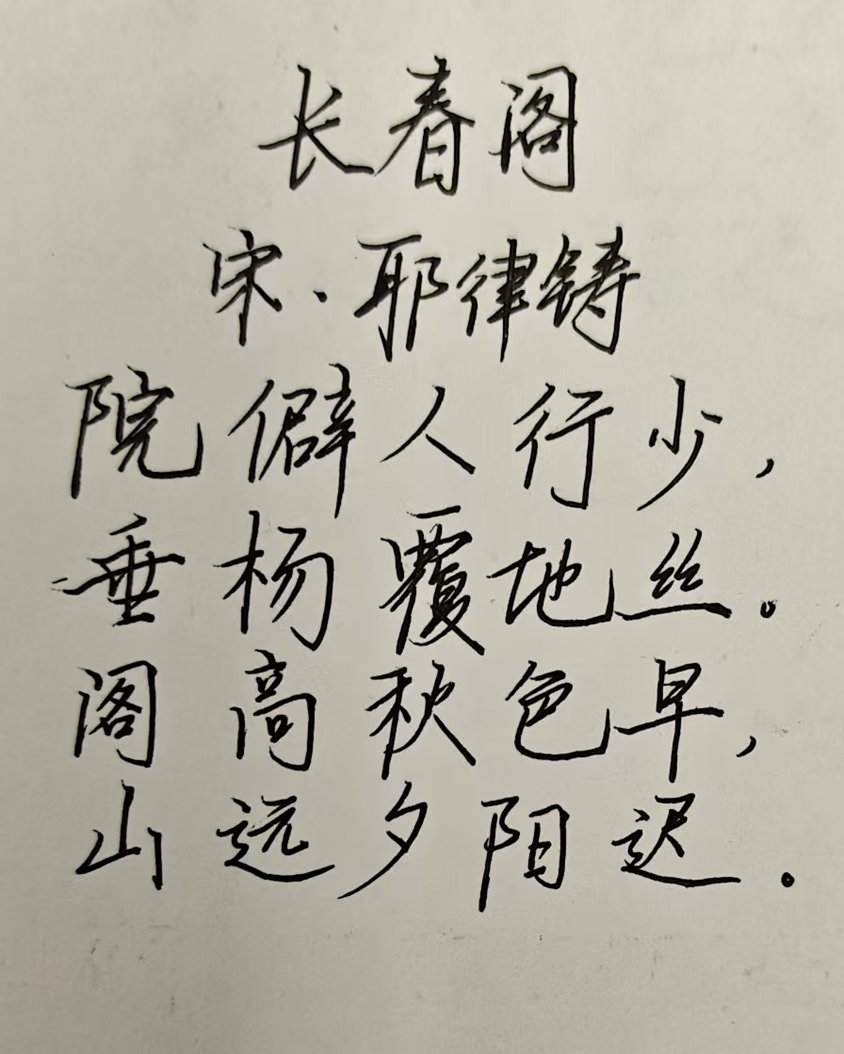 长春阁
宋·耶律铸
院僻人行少,
垂杨覆地丝。
阁高秋色早,
山远夕阳迟。